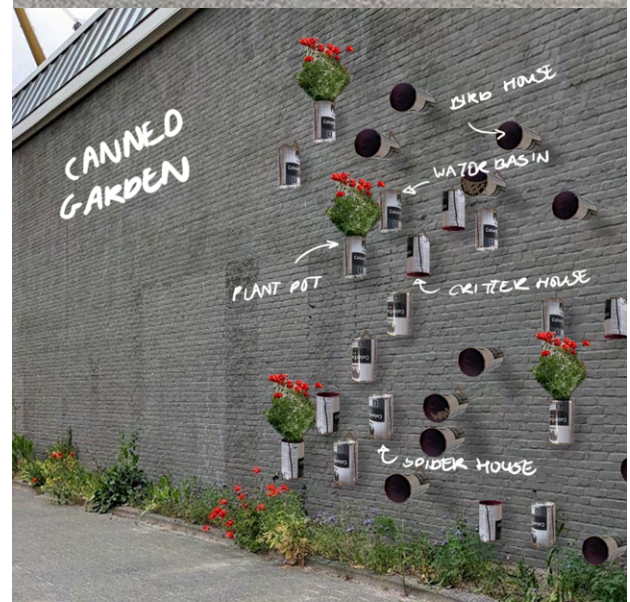 CANNED
GARDEN
BIRD HOUSE
WATER BASIN
PLANT POT
CRITTER HOUSE
SPIDER HOUSE